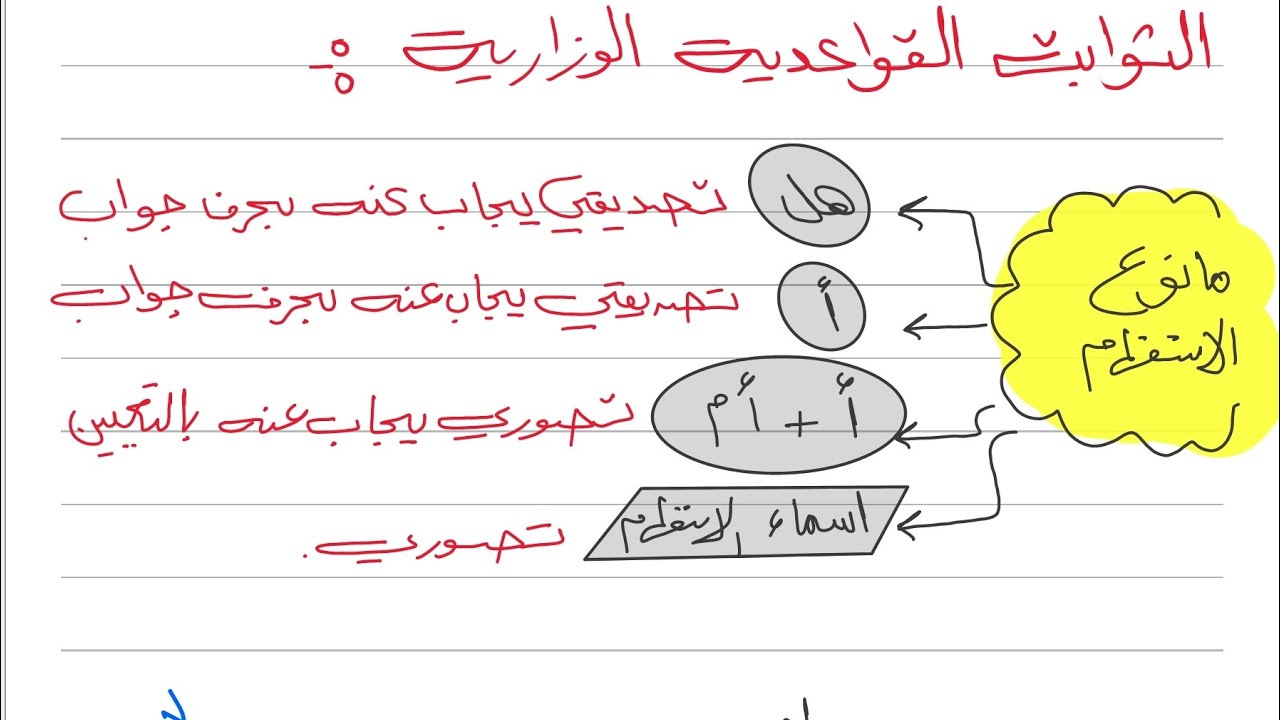 الثوابت القواعدية الوزارية :-
ما نوع
الاستفهام
هل تصديقي يجاب عنه بحرف جواب
أ تصديقي يجاب عنه بحرف جواب
أ + أم تصوري يجاب عنه بالتعيين
اسماء الاستفهام تصوري .